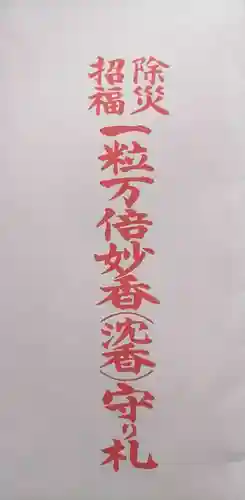 除災
招福
一粒万倍妙香(沈香)守り札